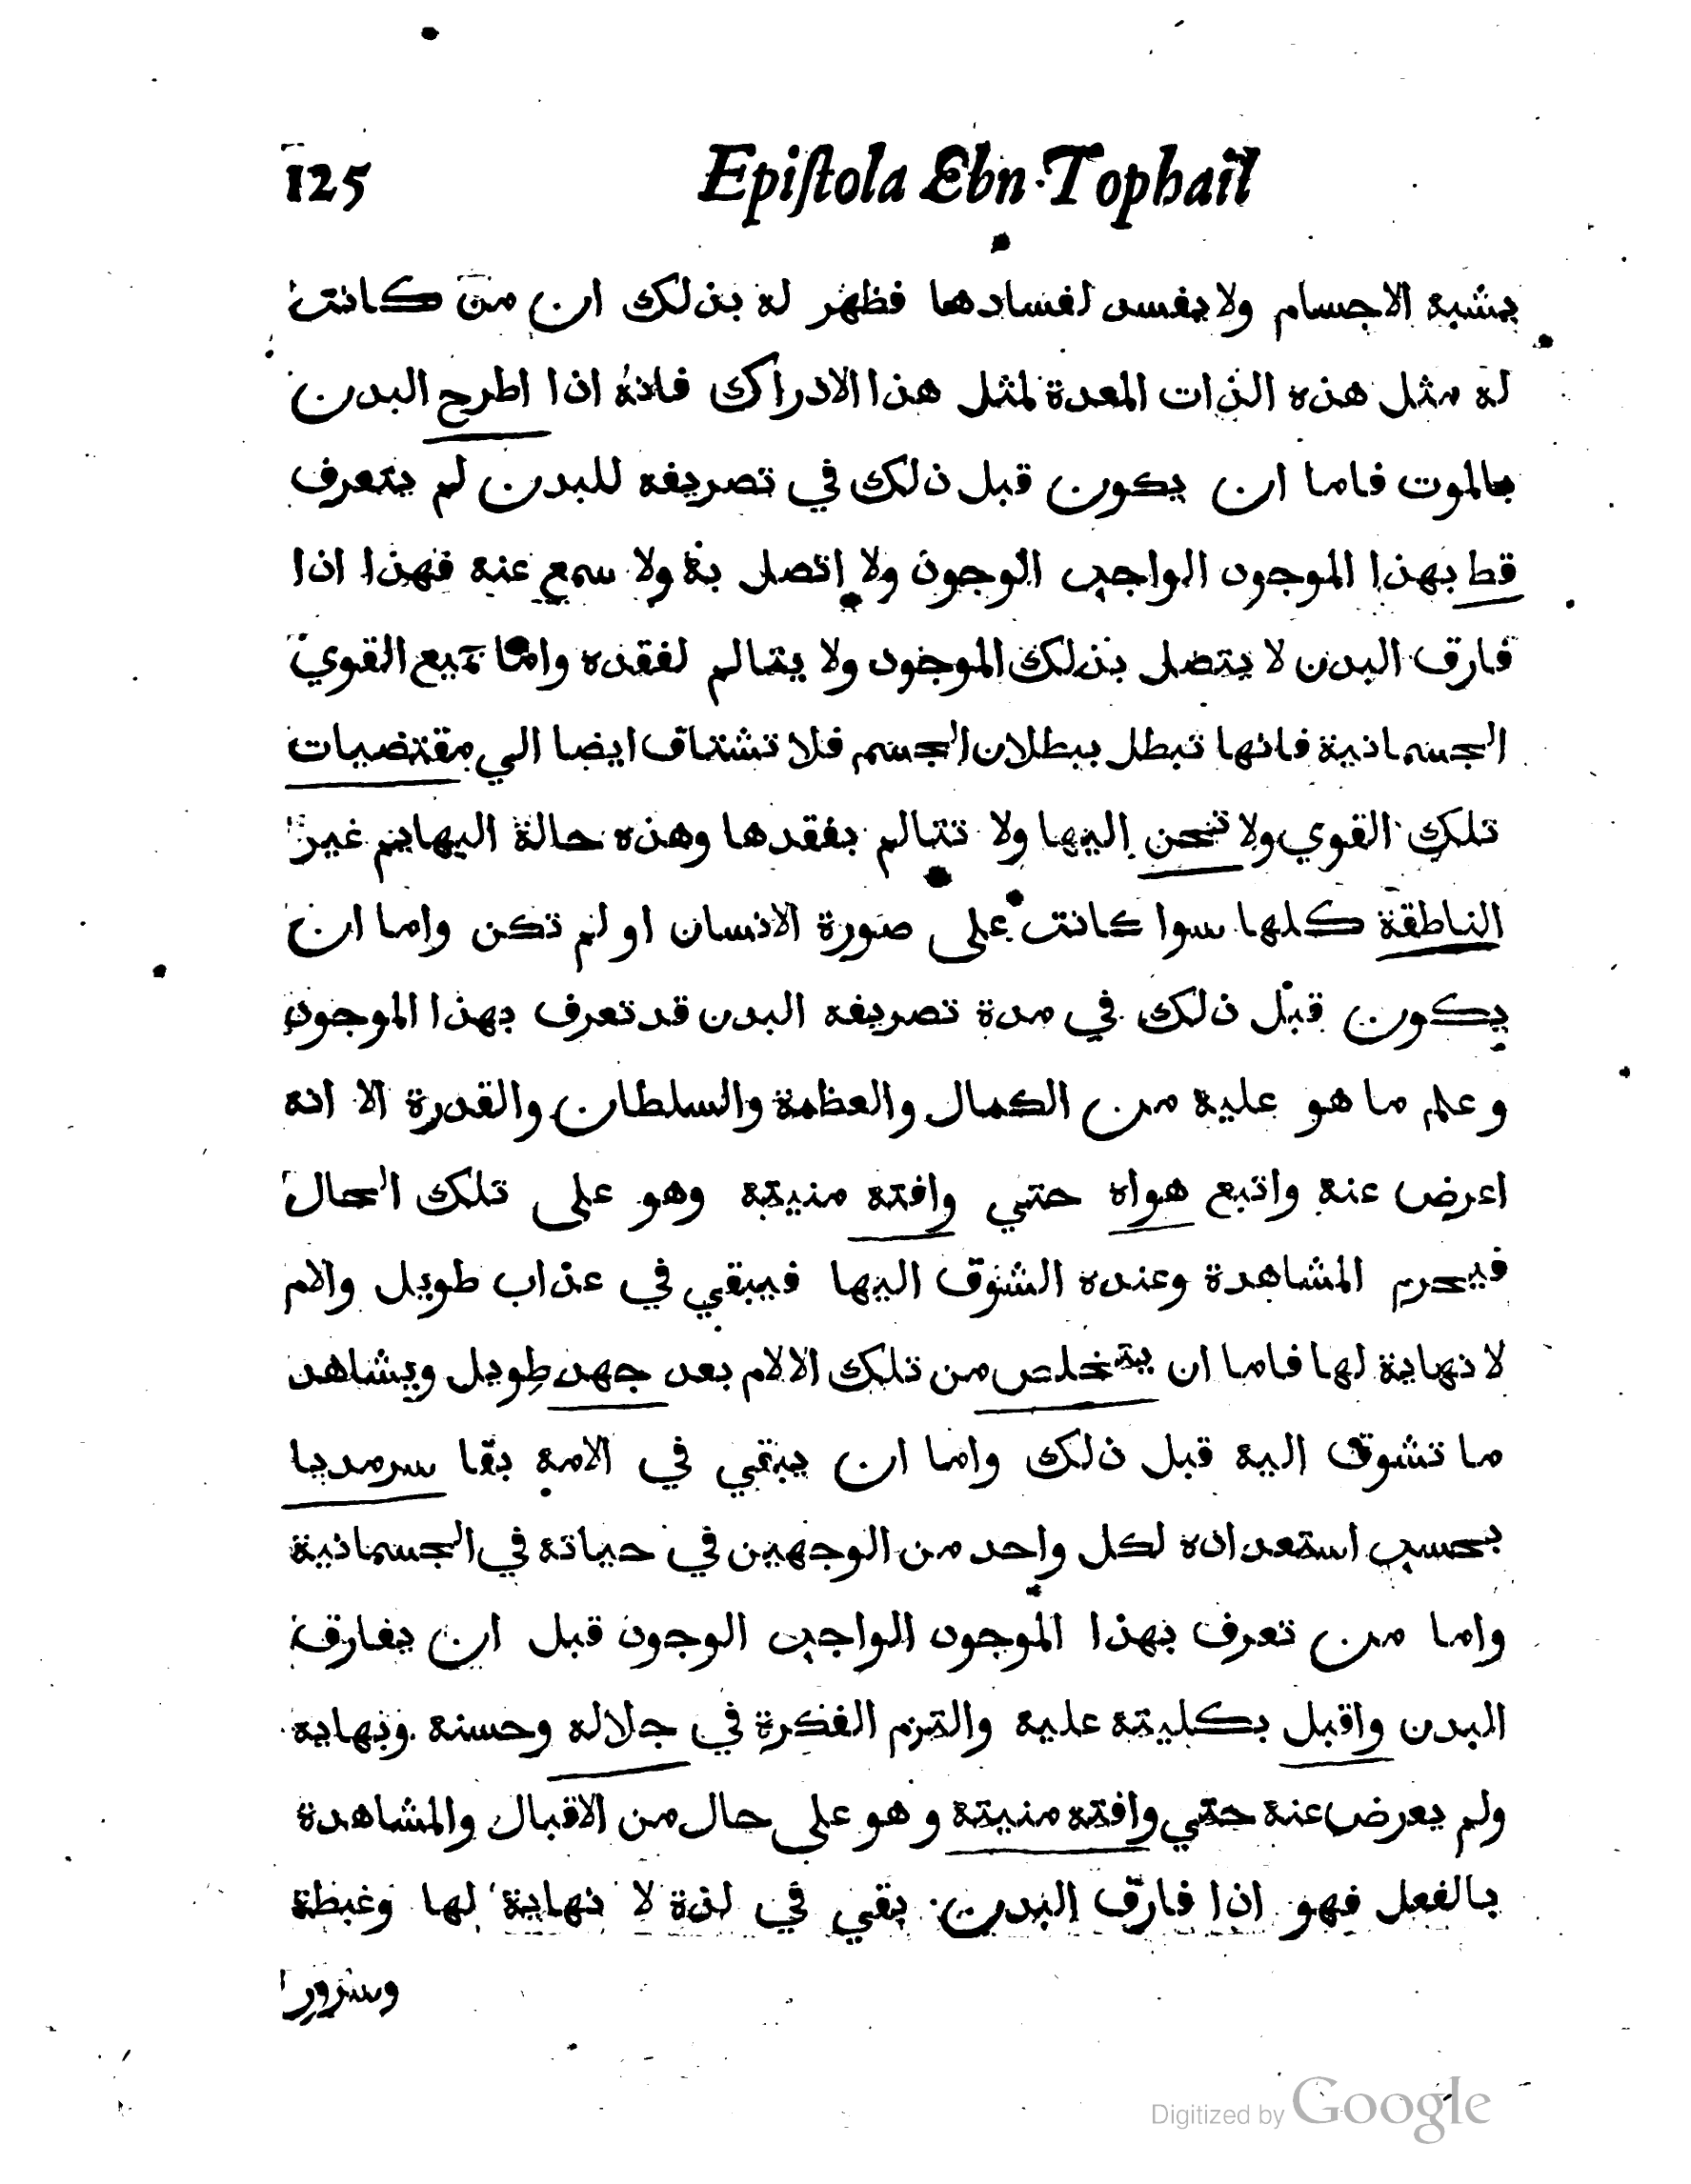 125 Epiſtola Ebn Tophail
يشبه الاجسام ولا يفسد لفسادها فظهر له بذلك ان من كانت
له مثل هذه الذات المعدة لمثل هذا الادراك فانه اذا اطرح البدن
بالموت فاما ان يكون قبل ذلك في تصريفه للبدن لم يتعرف
قط بهذا الموجود الواجب الوجود ولا اتصل به ولا سمع عنه فهذا اذا
فارق البدن لا يتصل بذلك الموجود ولا يتالم لفقده واما جميع القوي
الجسمانية فانها تبطل ببطلان الجسم فلا تشتاق ايضا الي مقتضيات
تلك القوي ولا تحن اليها ولا تتالم بفقدها وهذه حالة البهايم غير
الناطقة كلها سوا كانت على صورة الانسان او لم تكن واما ان
يكون قبل ذلك في مدة تصريفه البدن قد تعرف بهذا الموجود
وعلم ما هو عليه من الكمال والعظمة والسلطان والقدرة الا انه
اعرض عنه واتبع هواه حتي وافته منيته وهو على تلك الحال
فيحرم المشاهدة وعنده الشوق اليها فيبقي في عذاب طويل والام
لا نهاية لها فاما ان يتخلص من تلك الالام بعد جهد طويل ويشاهد
ما تشوق اليه قبل ذلك واما ان يبقي في الامه بقا سرمديا
بحسب استعداده لكل واحد من الوجهين في حياته في الجسمانية
واما من تعرف بهذا الموجود الواجب الوجود قبل ان يفارق
البدن واقبل بكليته عليه والتزم الفكرة في جلاله وحسنه وبهايه
ولم يعرض عنه حتي وافته منيته وهو على حال من الاقبال والمشاهدة
بالفعل فهو اذا فارق البدن بقي في لذة لا نهاية لها وغبطة
وسرور
Digitized by Google